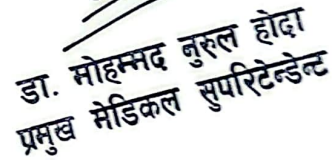 डा. मोहम्मद नुरुल होदा
प्रमुख मेडिकल सुपरिटेन्डेन्ट